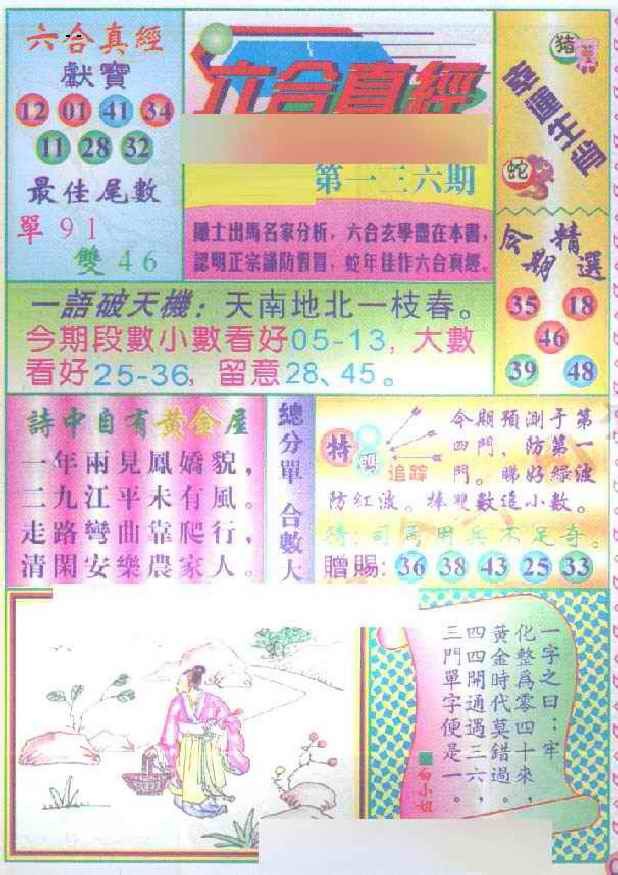 六合真經
獻寶
12 01 41 34
11 28 32
最佳尾數
單 91
雙 46
六合真經
第一三六期
隱士出馬名家分析，六合玄學盡在本書，
認明正宗謹防假冒，蛇年佳作六合真經。
豬
蛇
今期精選
35 18
46
39 48
一語破天機：天南地北一枝春。
今期段數小數看好05-13，大數
看好25-36，留意28、45。
詩中自有黃金屋
一年兩見鳳嬌貌，
二九江平未有風。
走路彎曲靠爬行，
清閑安樂農家人。
總分單 合數大
特
追踪
今期預測于第
四門，防第一
門。睇好綠波
防紅波。捧雙數追小數。
猜：司馬用兵不足奇。
贈賜：36 38 43 25 33
一字之曰：牢
化整為零四十來，
黃金時代莫錯過。
四四開通遇三六，
三門單字便是一。
白小姐